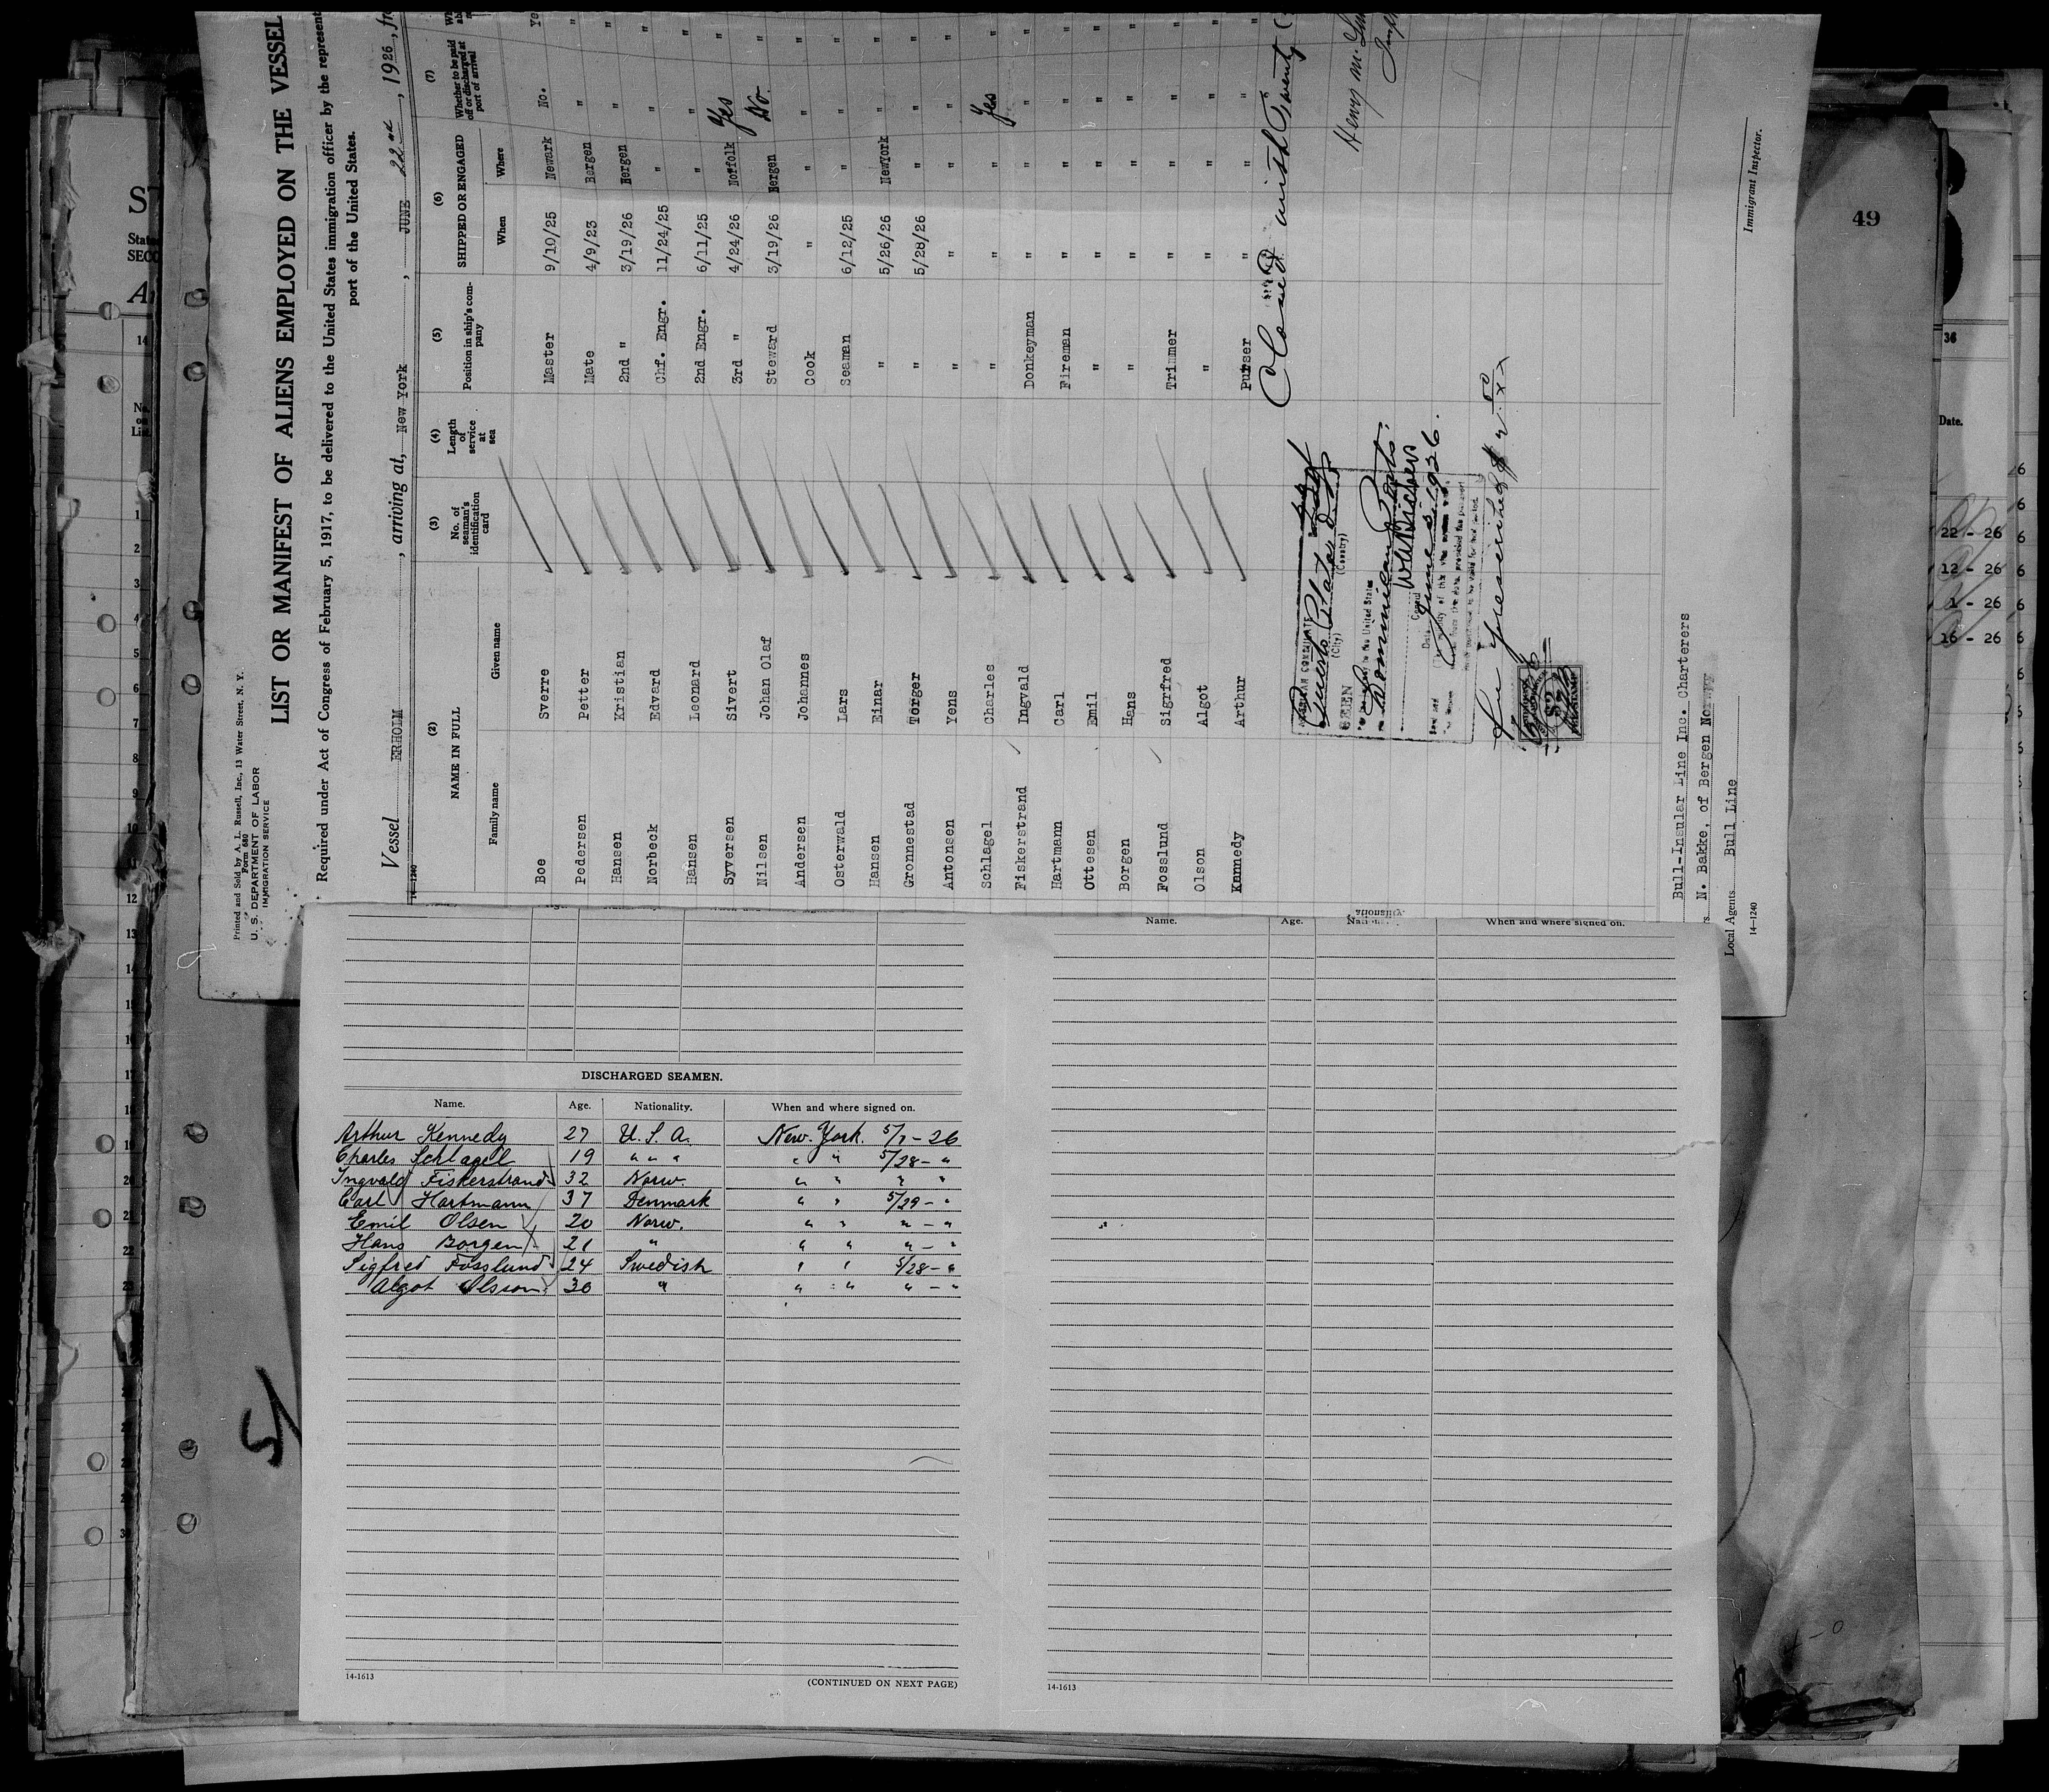 Printed and Sold by A. L. Russell, Inc., 13 Water Street, N. Y.
Form 680
U. S. DEPARTMENT OF LABOR
IMMIGRATION SERVICE
LIST OR MANIFEST OF ALIENS EMPLOYED ON THE VESSEL
Required under Act of Congress of February 5, 1917, to be delivered to the United States immigration officer by the represent
port of the United States.
Vessel ERHOLM, arriving at, New York, JUNE 22nd, 1926, fr
14-1240
(2) (3) (4) (5) (6) (7)
NAME IN FULL No. of seaman's identification card Length of service at sea Position in ship's company SHIPPED OR ENGAGED Whether to be paid off or discharged at port of arrival
Family name Given name When Where
Boe Sverre Master 9/10/25 Newark No. Ye
Pedersen Petter Mate 4/9/23 Bergen " "
Hansen Kristian 2nd " 3/19/26 Bergen " "
Norbeck Edvard Chf. Engr. 11/24/25 " " "
Hansen Leonard 2nd Engr. 6/11/25 " "
Syversen Sivert 3rd " 4/24/26 Norfolk Yes "
Nilsen Johan Olaf Steward 3/19/26 Bergen No "
Andersen Johannes Cook " " " "
Osterwald Lars Seaman 6/12/25 " " "
Hansen Einar " 5/26/26 NewYork " "
Gronnestad Torger " 5/28/26 " " "
Antonsen Yens " " " " "
Schlagel Charles " " " Yes "
Fiskerstrand Ingvald Donkeyman " " " "
Hartmann Carl Fireman " " " "
Ottesen Emil " " " " "
Borgen Hans " " " " "
Fosslund Sigrfred Trimmer " " " "
Olson Algot " " " " "
Knnedy Arthur Purser " " " "
Closed with Twenty (
Henry M.
AMERICAN CONSULATE
Puerto Plata
(City) (Country)
SEEN
Dominican Ports.
Consul
Date June 1926.
Fee prescribed $2.00
Bull-Insular Line Inc. Charterers
N. Bakke, of Bergen Norway
Local Agents Bull Line
14-1240
Immigrant Inspector.
Name. Age. When and where signed on.
DISCHARGED SEAMEN.
Name. Age. Nationality. When and where signed on.
Arthur Kennedy 27 U. S. A. New York. 5/7 - 26
Charles Schlagel 19 " " " " " 5/28 - "
Ingvald Fiskerstrand 32 Norw. " " " "
Carl Hartmann 37 Denmark " " 5/29 - "
Emil Olsen 20 Norw. " " " - "
Hans Borgen 21 " " " " - "
Sigfred Fosslund 24 Swedish " " 5/28 - "
Algot Olsson 30 " " " " - "
14-1613
(CONTINUED ON NEXT PAGE)
14-1613
49
36
Date.
22 - 26
12 - 26
1 - 26
16 - 26